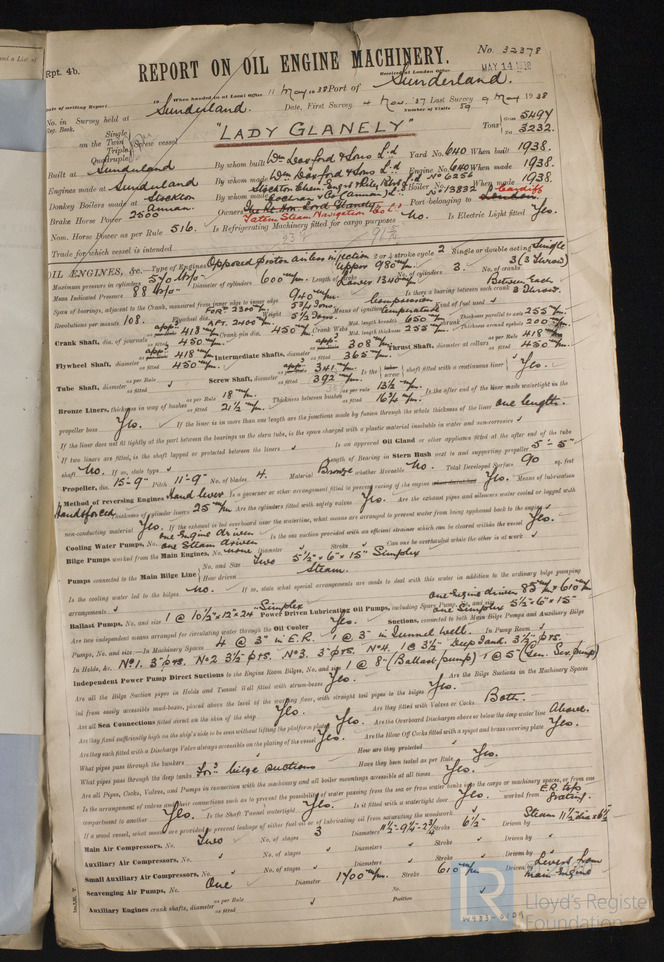 Rpt. 4b.
REPORT ON OIL ENGINE MACHINERY.
No. 32378
MAY 14 1938
Received at London Office
Date of writing Report 19 When handed in at Local Office 11 May 1938 Port of Sunderland.
No. in Survey held at Sunderland. Date, First Survey 4 Nov. 37 Last Survey 9 May 1938
Reg. Book. Number of Visits 59
on the Single Twin Triple Quadruple Screw vessel "LADY GLANELY" Tons Gross 5497 Net 3232.
Built at Sunderland By whom built Wm Doxford & Sons Ld Yard No. 640 When built 1938.
Engines made at Sunderland By whom made Wm Doxford & Sons Ld Engine No. 640 When made 1938.
Donkey Boilers made at Stockton Annan. By whom made Boiler No. 6256 No 13832 When made 1938.
Brake Horse Power 2500 Owners The Rt. Hon. Lord Glanely Tatem Steam Navigation Co Ld Port belonging to London Cardiff
Nom. Horse Power as per Rule 516. Is Refrigerating Machinery fitted for cargo purposes No. Is Electric Light fitted Yes.
Trade for which vessel is intended
OIL ENGINES, &c. Type of Engines Opposed piston airless injection 2 or 4 stroke cycle 2 Single or double acting Single
Maximum pressure in cylinders 570 lbs/□" Diameter of cylinders 600 m/m. Length of stroke Upper 980 m/m. Lower 1340 m/m. No. of cylinders 3. No. of cranks 3 (3 Throw)
Mean Indicated Pressure 88 lbs/□"
Span of bearings, adjacent to the Crank, measured from inner edge to inner edge 940 m/m. Is there a bearing between each crank Between Each 3 Throw.
Revolutions per minute 108. Flywheel dia. For'd 2300 m/m. Aft. 2400 m/m. Weight 5¾ Tons. 5½ Tons. Means of ignition Compression Kind of fuel used
Crank Shaft, dia. of journals as per Rule appd 418 m/m. as fitted 450 m/m. Crank pin dia. 450 m/m. Crank Webs Mid. length breadth 650 m/m. Thickness parallel to axis 255 m/m.
Mid. length thickness 255 m/m. Thickness around eyehole 200 m/m.
Flywheel Shaft, diameter as per Rule appd 418 m/m. as fitted 450 m/m. Intermediate Shafts, diameter as per Rule appd 308 m/m. as fitted 365 m/m. Thrust Shaft, diameter at collars as per Rule 418 m/m. as fitted 450 m/m.
Tube Shaft, diameter as per Rule as fitted Screw Shaft, diameter as per Rule appd 341 m/m. as fitted 392 m/m. Is the tube screw shaft fitted with a continuous liner Yes.
Bronze Liners, thickness in way of bushes as per Rule 18 m/m. as fitted 21½ m/m. Thickness between bushes as per rule 13½ m/m. as fitted 16¾ m/m. Is the after end of the liner made watertight in the
propeller boss Yes. If the liner is in more than one length are the junctions made by fusion through the whole thickness of the liner one length.
If the liner does not fit tightly at the part between the bearings in the stern tube, is the space charged with a plastic material insoluble in water and non-corrosive
If two liners are fitted, is the shaft lapped or protected between the liners Is an approved Oil Gland or other appliance fitted at the after end of the tube
shaft No. If so, state type Length of Bearing in Stern Bush next to and supporting propeller 5'-5"
Propeller, dia. 15'-9" Pitch 11'-9" No. of blades 4. Material Bronze whether Moveable No. Total Developed Surface 90 sq. feet
Method of reversing Engines Hand lever Is a governor or other arrangement fitted to prevent racing of the engine Yes. Means of lubrication
Hand & forced Thickness of cylinder liners 25 m/m Are the cylinders fitted with safety valves Yes. Are the exhaust pipes and silencers water cooled or lagged with
non-conducting material Yes. If the exhaust is led overboard near the waterline, what means are arranged to prevent water from being syphoned back to the engine
Cooling Water Pumps, No. one Engine driven one Steam driven Is the sea suction provided with an efficient strainer which can be cleared within the vessel Yes.
Bilge Pumps worked from the Main Engines, No. none Diameter Stroke Can one be overhauled while the other is at work
Pumps connected to the Main Bilge Line No. and Size Two 5½" × 6" × 15" Simplex
How driven Steam.
Is the cooling water led to the bilges No. If so, state what special arrangements are made to deal with this water in addition to the ordinary bilge pumping
arrangements
Ballast Pumps, No. and size 1 @ 10½" × 12" × 24" Simplex Power Driven Lubricating Oil Pumps, including Spare Pump, No. and size one Engine driven 85 m/m × 610 m/m one Simplex 5½" × 6" × 15"
Are two independent means arranged for circulating water through the Oil Cooler Yes. Suctions, connected to both Main Bilge Pumps and Auxiliary Bilge
Pumps, No. and size:—In Machinery Spaces 4 @ 3" in E.R. 1 @ 3" in Tunnel Well. In Pump Room
In Holds, &c. No1. 3" p&s. No2 3½" p&s. No3. 3" p&s. No4. 1 @ 3½" Deep Tank. 3½" p&s.
Independent Power Pump Direct Suctions to the Engine Room Bilges, No. and size 1 @ 8" (Ballast pump) 1 @ 5" (Gen. Ser. pump)
Are all the Bilge Suction pipes in Holds and Tunnel Well fitted with strum-boxes Yes. Are the Bilge Suctions in the Machinery Spaces
led from easily accessible mud-boxes, placed above the level of the working floor, with straight tail pipes to the bilges Yes.
Are all Sea Connections fitted direct on the skin of the ship Yes. Are they fitted with Valves or Cocks Both.
Are they fixed sufficiently high on the ship's side to be seen without lifting the platform plates Yes. Are the Overboard Discharges above or below the deep water line Above.
Are they each fitted with a Discharge Valve always accessible on the plating of the vessel Yes. Are the Blow Off Cocks fitted with a spigot and brass covering plate Yes.
What pipes pass through the bunkers How are they protected
What pipes pass through the deep tanks For'd bilge suctions Have they been tested as per Rule Yes.
Are all Pipes, Cocks, Valves, and Pumps in connection with the machinery and all boiler mountings accessible at all times Yes.
Is the arrangement of valves and their connections such as to prevent the possibility of water passing from the sea or from water tanks into the cargo or machinery spaces, or from one
compartment to another Yes. Is the Shaft Tunnel watertight Yes. Is it fitted with a watertight door Yes. worked from E.R. top grating.
If a wood vessel, what means are provided to prevent leakage of either fuel oil or lubricating oil from saturating the woodwork
Main Air Compressors, No. Two No. of stages 3 Diameters 11½"-9¼"-2¾" Stroke 6½" Driven by Steam 11½" dia × 6½"
Auxiliary Air Compressors, No. No. of stages Diameters Stroke Driven by
Small Auxiliary Air Compressors, No. No. of stages Diameters Stroke Driven by
Scavenging Air Pumps, No. One Diameter 1700 m/m. Stroke 610 m/m Driven by Levers from main Engine
Auxiliary Engines crank shafts, diameter as per Rule as fitted No. Position
LR
Lloyd's Register
Foundation